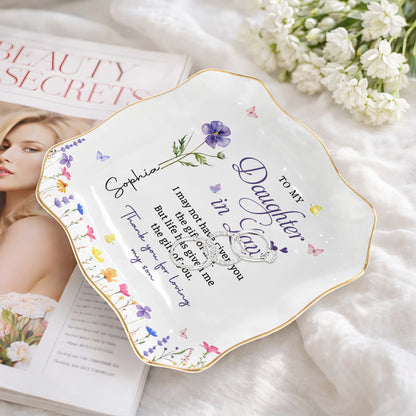 BEAUTY
SECRETS
Sophia
TO MY
Daughter
in Law
I may not have given you
the gift of
But life has given me
the gift of you.
Thank you for loving
my son